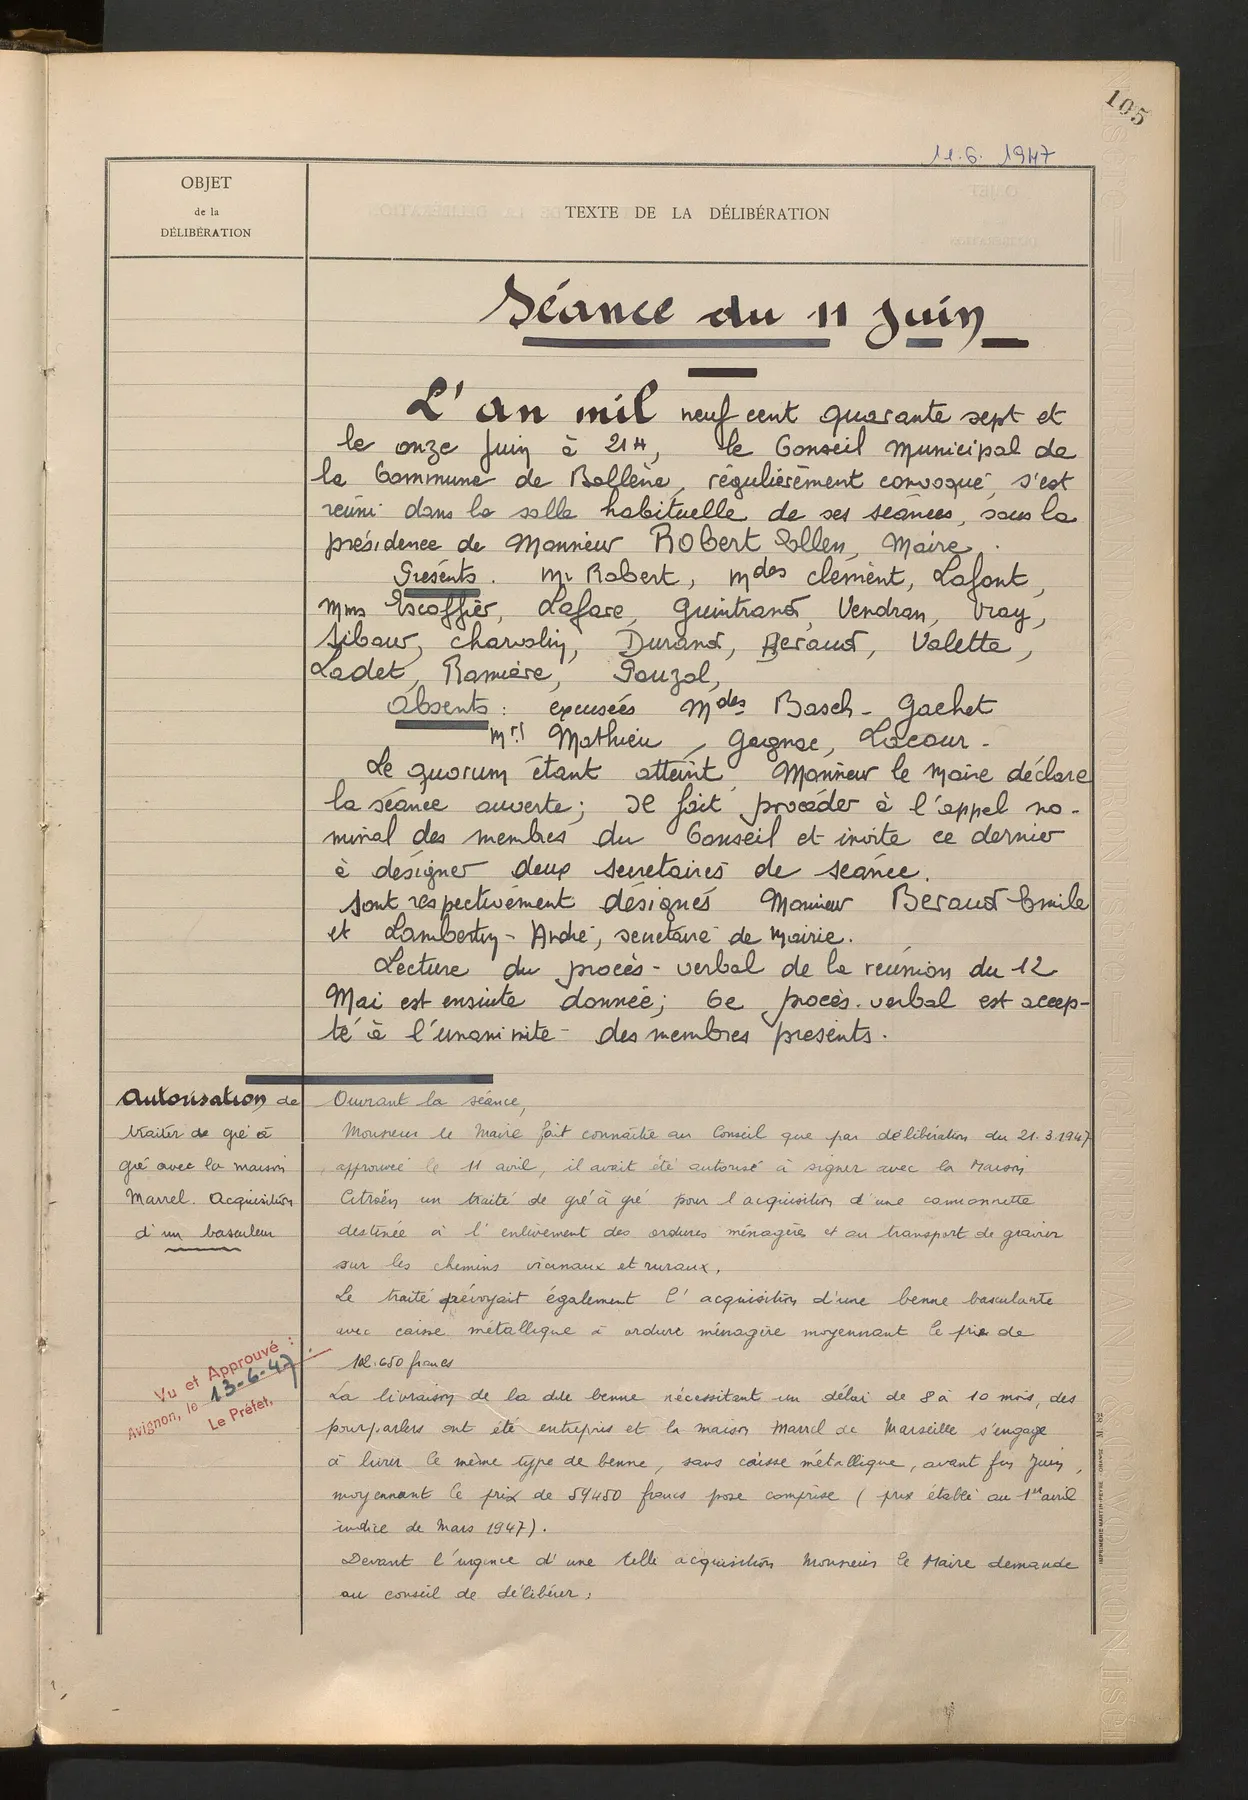 105
11.6.1947
OBJET
de la
DÉLIBÉRATION
TEXTE DE LA DÉLIBÉRATION
Séance du 11 Juin
L'an mil neuf cent quarante sept et
le onze Juin à 21H, le Conseil Municipal de
la Commune de Bollène, régulièrement convoqué, s'est
réuni dans la salle habituelle de ses séances, sous la
présidence de Monsieur Robert Ellen, Maire.
Présents. Mr Robert, Mdes Clément, Lafont,
Mms Escoffier, Lafare, Guintrand, Vendran, Vray,
Sibour, Charvolin, Durand, Beraud, Valette,
Ladet, Ramière, Pouzol,
Absents : excusées Mdes Basch - Gachet
Mrs Mathieu, Gagnac, Lacour -
Le quorum étant atteint, Monsieur le Maire déclare
la séance ouverte; il fait procéder à l'appel no-
minal des membres du Conseil et invite ce dernier
à désigner deux secretaires de séance.
Sont respectivement désignés Monsieur Beraud Emile
et Lambertin - André, secretaire de Mairie.
Lecture du procès-verbal de la réunion du 12
Mai est ensuite donnée; Ce procès-verbal est accep-
té à l'unanimité des membres présents.
Autorisation de
traiter de gré à
gré avec la maison
Marrel. Acquisition
d'un basculeur
Vu et Approuvé :
Avignon, le 13-6-47
Le Préfet,
Ouvrant la séance,
Monsieur le Maire fait connaître au Conseil que par délibération du 21.3.1947
approuvée le 11 avril, il avait été autorisé à signer avec la Maison
Citroën un traité de gré à gré pour l'acquisition d'une camionnette
destinée à l'enlèvement des ordures ménagères et au transport de gravier
sur les chemins vicinaux et ruraux.
Le traité prévoyait également l'acquisition d'une benne basculante
avec caisse métallique à ordure ménagère moyennant le prix de
102.650 francs
La livraison de la dite benne nécessitant un délai de 8 à 10 mois, des
pourparlers ont été entrepris et la maison Marrel de Marseille s'engage
à livrer le même type de benne, sans caisse métallique, avant fin Juin,
moyennant le prix de 59450 francs pose comprise ( prix établi au 1er avril
indice de Mars 1947).
Devant l'urgence d'une telle acquisition Monsieur le Maire demande
au conseil de délibérer :
IMPRIMERIE MARTIN-PEYRE - ORANGE